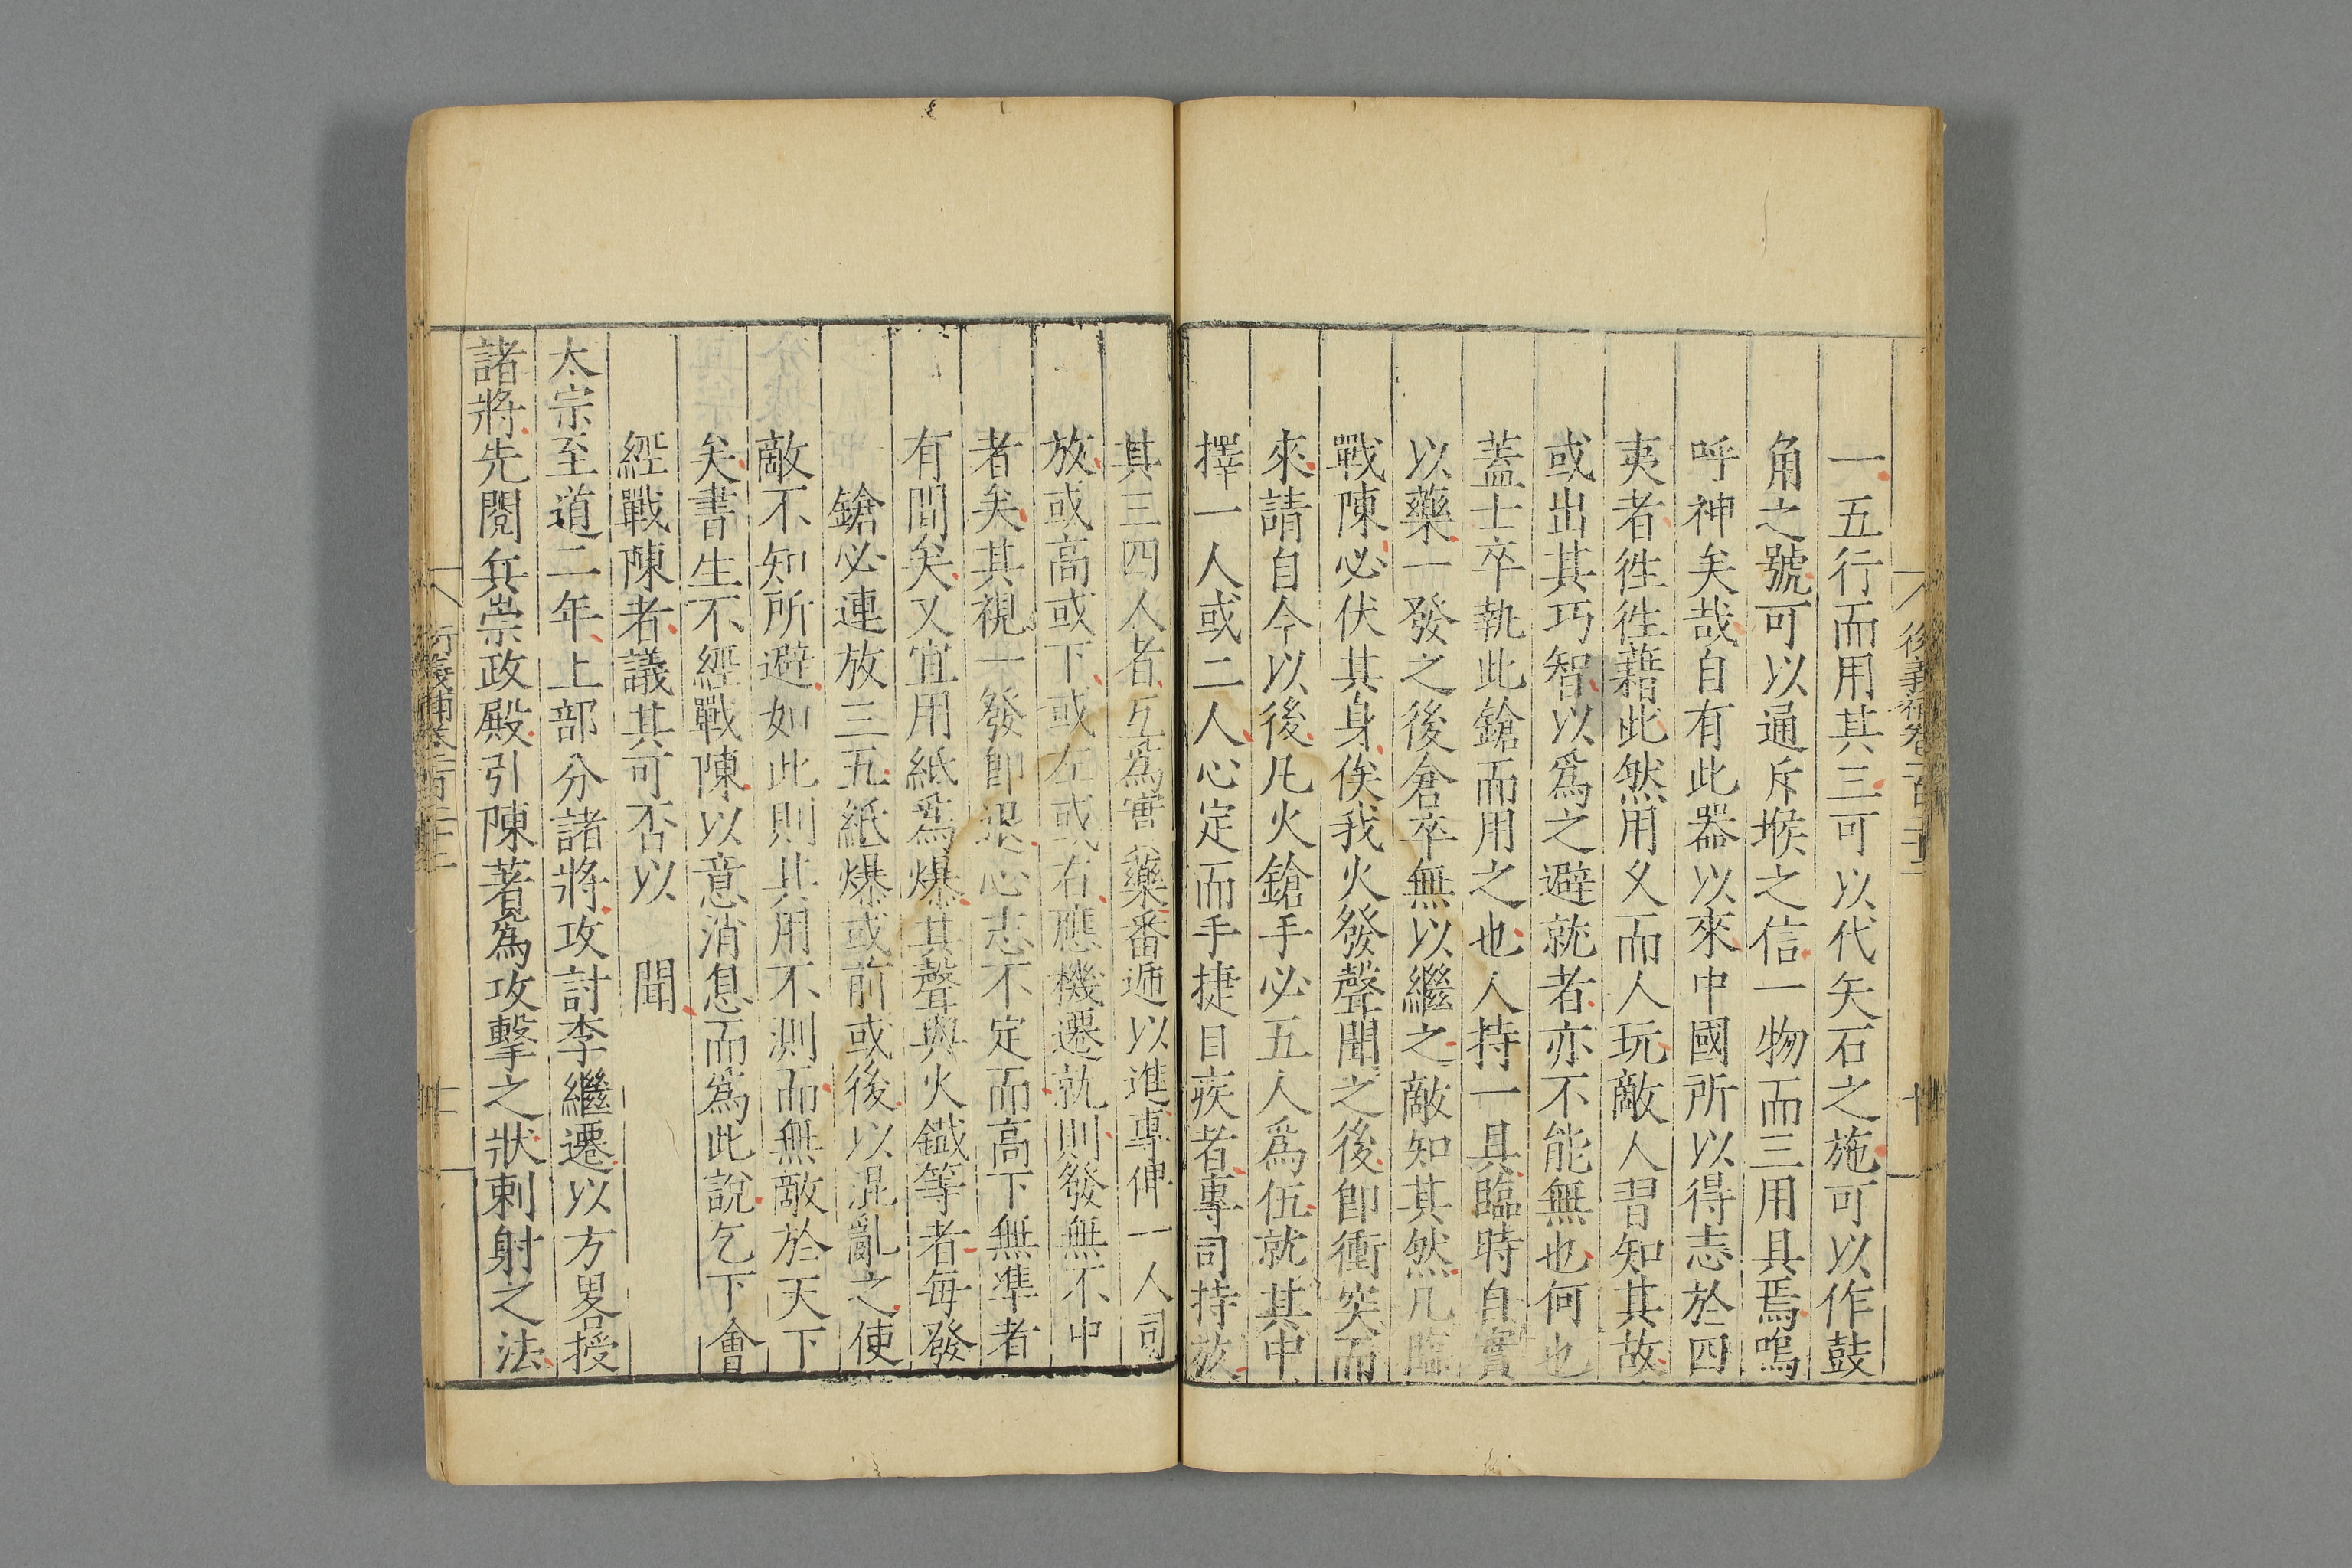 一五行而用其三可以代矢石之施可以作鼓
角之號可以通斥堠之信一物而三用具焉嗚
呼神矣哉自有此器以來中國所以得志於四
夷者徃徃藉此然用久而人玩敵人習知其故
或出其巧智以爲之避就者亦不能無也何也
蓋士卒執此鎗而用之也人持一具臨時自實
以藥一發之後倉卒無以繼之敵知其然凡臨
戰陳必伏其身俟我火發聲聞之後即衝突而
來請自今以後凡火鎗手必五人爲伍就其中
擇一人或二人心定而手捷目疾者專司持放
其三四人者互爲實藥番逓以進專俾一人司
放或高或下或左或右應機遷就則發無不中
者矣其視一發即退心志不定而高下無準者
有間矣又宜用紙爲爆其聲與火鎗等者每發
鎗必連放三五紙爆或前或後以混亂之使
敵不知所避如此則其用不測而無敵於天下
矣書生不經戰陳以意消息而爲此說乞下會
經戰陳者議其可否以 聞
太宗至道二年上部分諸將攻討李繼遷以方畧授
諸將先閱兵崇政殿引陳著爲攻擊之狀刺射之法